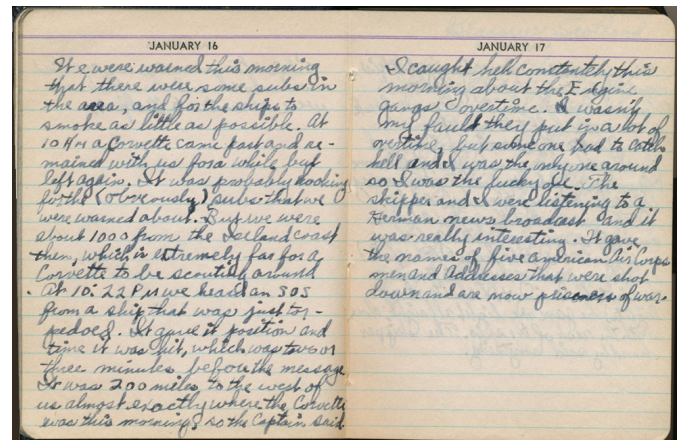 JANUARY 16
We were warned this morning
that there were some subs in
the area, and for the ships to
smoke as little as possible. At
10 AM a Corvette came past and re-
mained with us for a while but
left again. It was probably looking
for the (obveously) subs that we
were warned about. But we were
about 1000 from the Iceland coast
then, which is extremely far for a
Corvette to be scouting around
. At 10:22 PM we heard an SOS
from a ship that was just tor-
pedoed. It gave it position and
time it was hit, which was two or
three minutes before the message
It was 200 miles to the west of
us almost exactly where the Corvette
was this morning, so the Captain said.
JANUARY 17
I caught hell constantely this
morning about the Engine
gangs overtime. It wasn't
my fault they put in a lot of
overtime, but someone had to catch
hell and I was the only one around
so I was the lucky one. The
skipper and I were listening to a
German news broadcast and it
was really interesting. It gave
the names of five american Air Corps
men and addresses that were shot
down and are now prisoners of war.